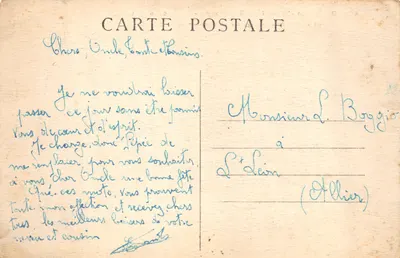 CARTE POSTALE
Chers, Oncle, Tante et Cousins.
Je ne voudrai laisser
passer ce jour sans être parmi
vous de cœur et d'esprit.
Je charge donc
me remplacer pour vous souhaiter,
à vous Cher Oncle une bonne fête
Que ces mots, vous prouvent
toute mon affection et recevez chers
tous, les meilleurs baisers de votre
neveu et cousin
Monsieur L. Boggio
à
St Léon
(Allier)